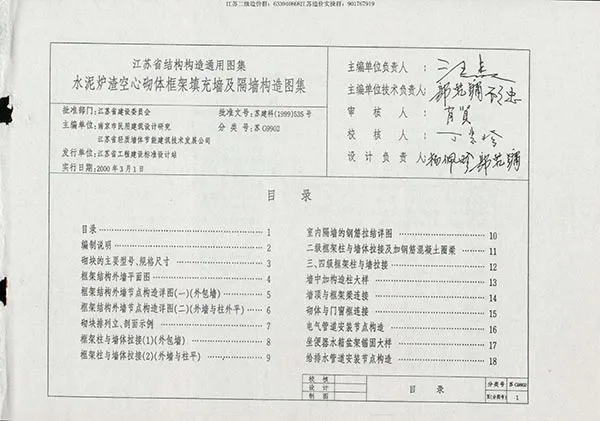 江苏二级造价群:633940868江苏造价实操群:901767919
江苏省结构构造通用图集
水泥炉渣空心砌体框架填充墙及隔墙构造图集
批准部门:江苏省建设委员会
批准文号:苏建科(1999)535号
主编单位:南京市民用建筑设计研究
分类号:苏G9902
江苏省轻质墙体节能建筑技术发展公司
发行单位:江苏省工程建设标准设计站
实行日期:2000年3月1日
主编单位负责人:
主编单位技术负责人:
审核人:
校核人:
设计负责人:
目录
目录 1
编制说明 2
砌块的主要型号、规格尺寸 3
框架结构外墙平面图 4
框架结构外墙节点构造详图(一)(外包墙) 5
框架结构外墙节点构造详图(二)(外墙与柱外平) 6
砌块排列立、剖面示例 7
框架柱与墙体拉接(1)(外包墙) 8
框架柱与墙体拉接(2)(外墙与柱平) 9
室内隔墙的钢筋拉结详图 10
二级框架柱与墙体拉接及加钢筋混凝土圈梁 11
三、四级框架柱与墙拉接 12
墙中加构造柱大样 13
墙顶与框架梁连接 14
砌体与门窗框连接 15
电气管道安装节点构造 16
坐便器水箱盆架锚固大样 17
给排水管道安装节点构造 18
校核
设计
制图
目录
分类号 苏G9902
页(分图号) 1